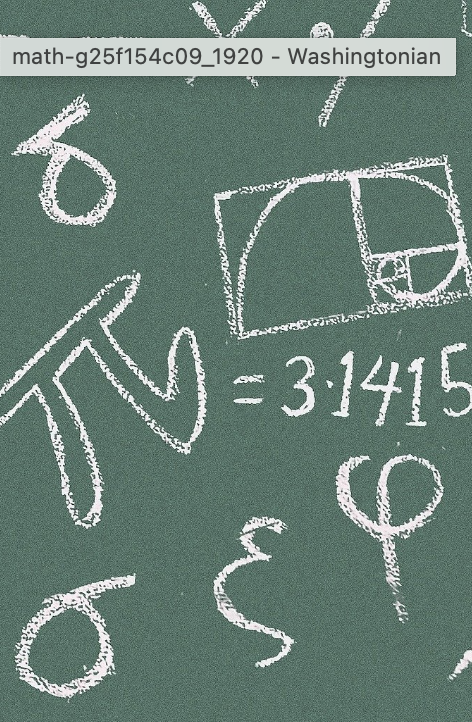 math-g25f154c09_1920 - Washingtonian
δ
π = 3.1415
φ
ξ
σ